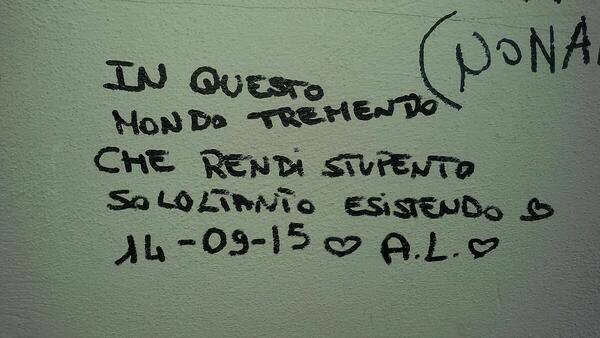 IN QUESTO
MONDO TREMENDO
CHE RENDI STUPENTO
SOLOLTANTO ESISTENDO ♡
14-09-15 ♡ A.L. ♡
(NONA